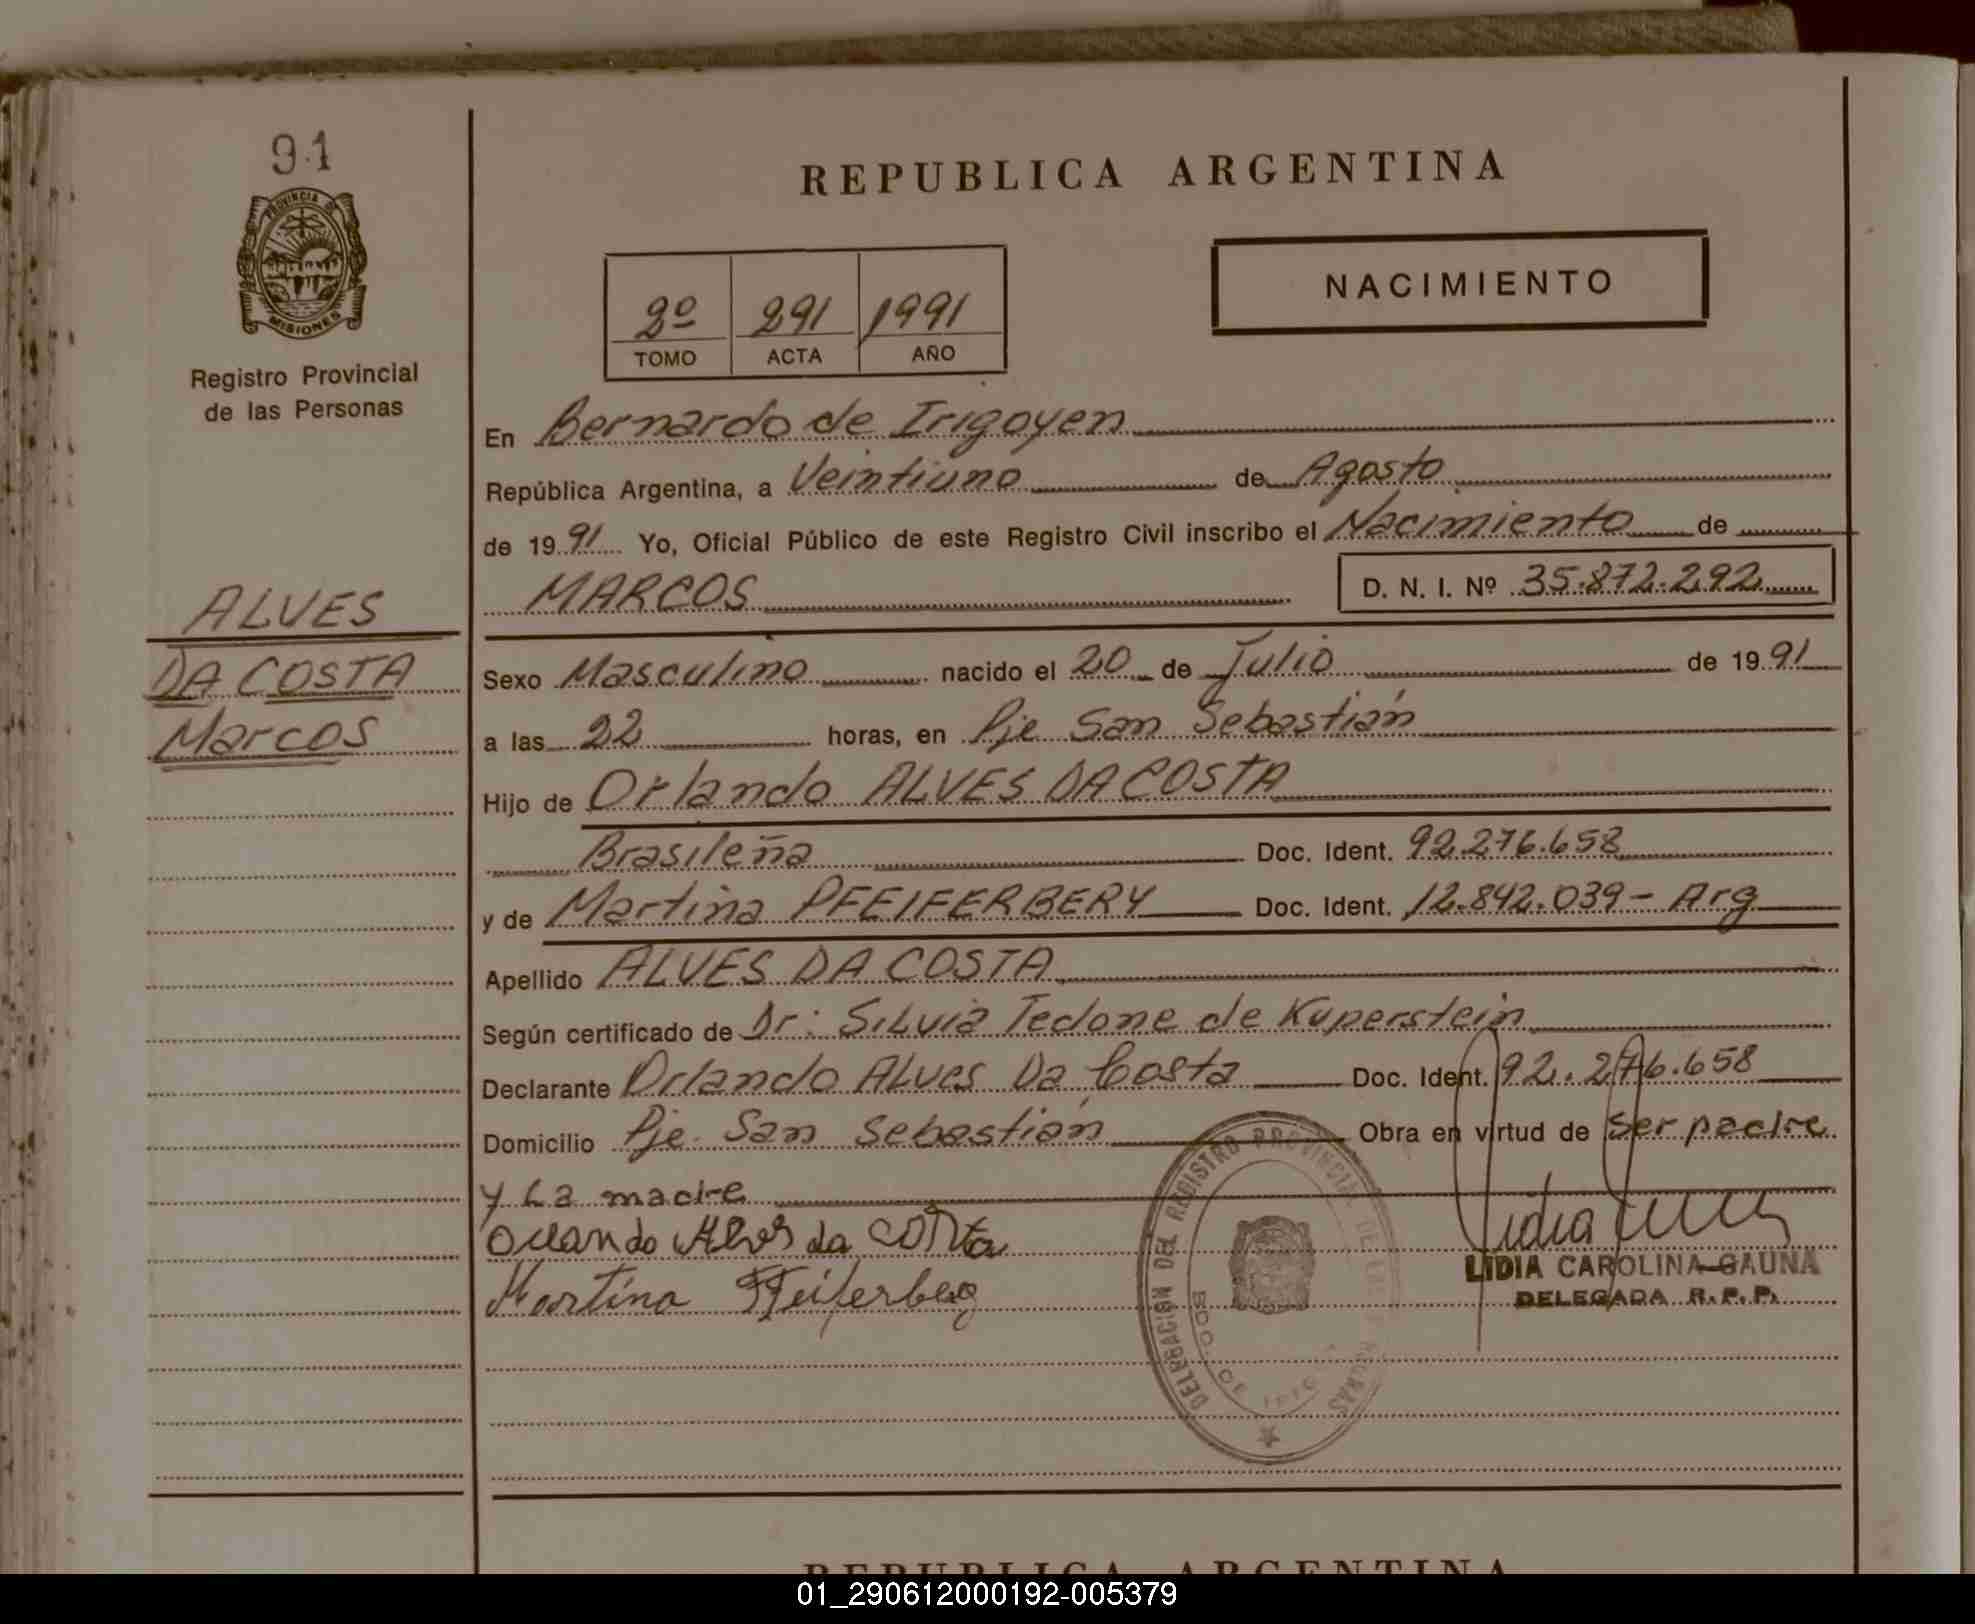 91
PROVINCIA D
MISIONES
Registro Provincial
de las Personas
ALVES
DA COSTA
Marcos
REPUBLICA ARGENTINA
2º 291 1991
TOMO ACTA AÑO
NACIMIENTO
En Bernardo de Irigoyen
República Argentina, a Veintiuno de Agosto
de 1991 Yo, Oficial Público de este Registro Civil inscribo el Nacimiento de
MARCOS D. N. I. Nº 35.872.292
Sexo Masculino nacido el 20 de Julio de 1991
a las 22 horas, en Pje San Sebastián
Hijo de Orlando ALVES DA COSTA
Brasileña Doc. Ident. 92.276.658
y de Martina PFEIFERBERY Doc. Ident. 12.842.039 - Arg
Apellido ALVES DA COSTA
Según certificado de Dr: Silvia Tedone de Kuperstein
Declarante Orlando Alves Da Costa Doc. Ident. 92.276.658
Domicilio Pje. San Sebastián Obra en virtud de ser padre
y La madre
Orlando Alves da COSTa
Martina Pfeiferberg
DELEGACION DEL REGISTRO PROVINCIAL DE LAS PERSONAS
BDO. DE IRIGO
LIDIA CAROLINA GAUNA
DELEGADA R. P. P.
REPUBLICA ARGENTINA
01_290612000192-005379